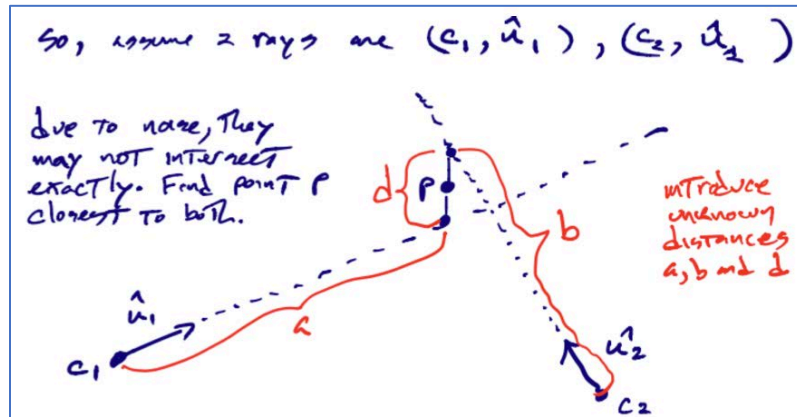 So, assume 2 rays are (c₁, û₁), (c₂, û₂)
due to noise, they
may not intersect
exactly. Find point P
closest to both.
d
P
b
introduce
unknown
distances
a, b and d
û₁
a
c₁
û₂
c₂